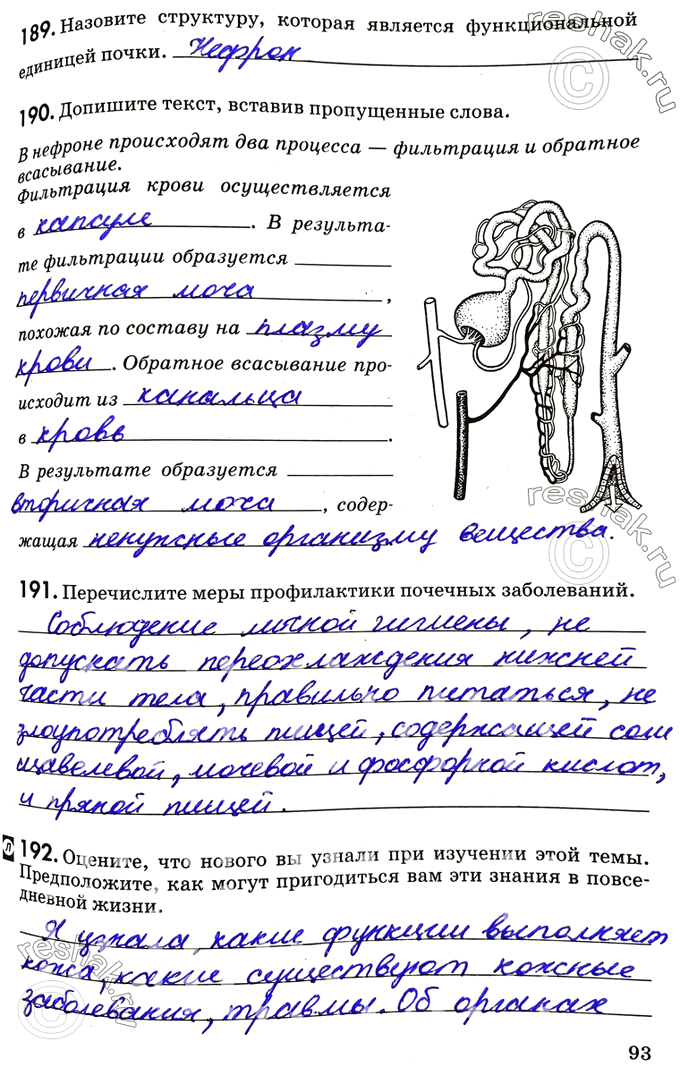 189. Назовите структуру, которая является функциональной
единицей почки. Нефрон
190. Допишите текст, вставив пропущенные слова.
В нефроне происходят два процесса — фильтрация и обратное
всасывание.
Фильтрация крови осуществляется
в капсуле. В результа-
те фильтрации образуется
первичная моча,
похожая по составу на плазму
крови. Обратное всасывание про-
исходит из канальца
в кровь.
В результате образуется
вторичная моча, содер-
жащая ненужные организму вещества.
191. Перечислите меры профилактики почечных заболеваний.
Соблюдение личной гигиены, не
допускать переохлаждения нижней
части тела, правильно питаться, не
злоупотреблять пищей, содержащей соли
щавелевой, мочевой и фосфорной кислот,
и пряной пищей.
л 192. Оцените, что нового вы узнали при изучении этой темы.
Предположите, как могут пригодиться вам эти знания в повсе-
дневной жизни.
Я узнала, какие функции выполняет
кожа, какие существуют кожные
заболевания, травмы. Об органах
93
reshak.ru
reshak.ru
reshak.ru